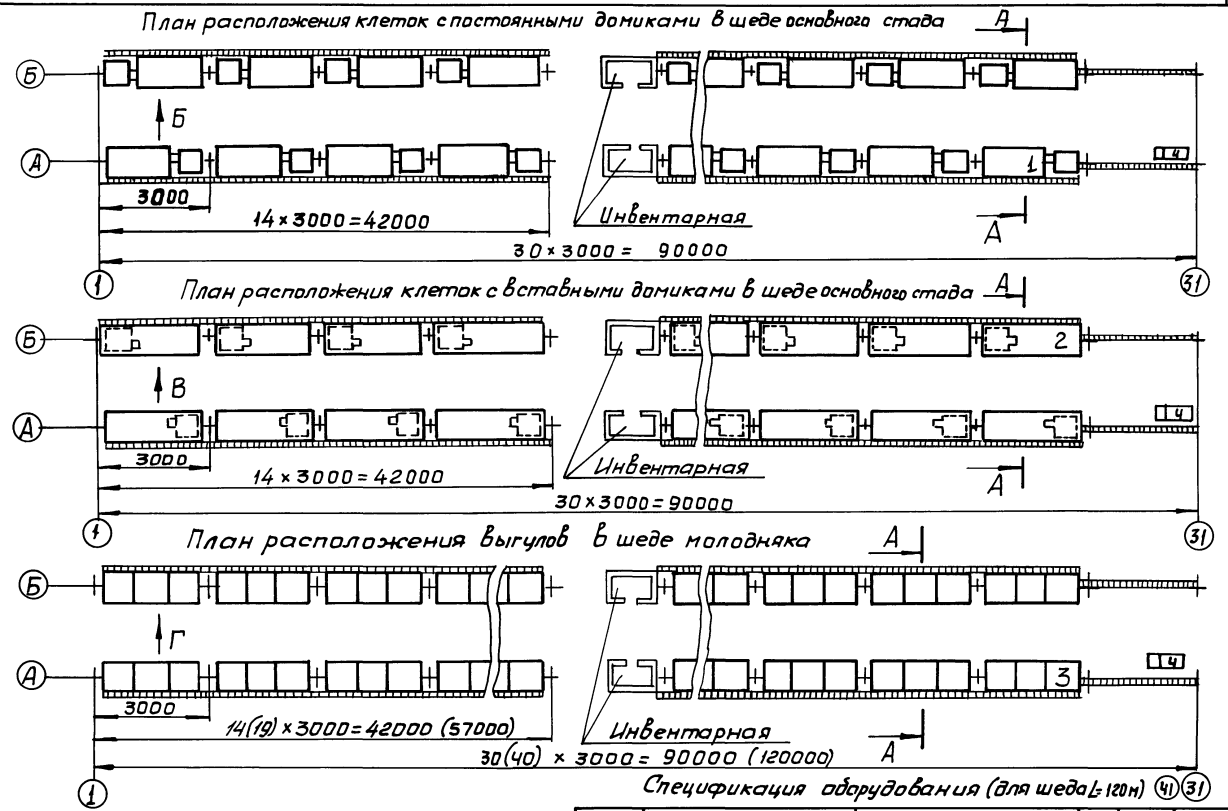 План расположения клеток с постоянными домиками в шеде основного стада
А
Б
Б
А
1
4
3000
14 × 3000 = 42000
Инвентарная
А
30 × 3000 = 90000
1
31
План расположения клеток с вставными домиками в шеде основного стада
А
Б
2
В
А
4
3000
14 × 3000 = 42000
Инвентарная
А
30 × 3000 = 90000
1
31
План расположения выгулов в шеде молодняка
А
Б
Г
А
3
4
3000
14(19) × 3000 = 42000 (57000)
Инвентарная
А
30(40) × 3000 = 90000 (120000)
1
Спецификация оборудования (для шеда L=120м) 41 31